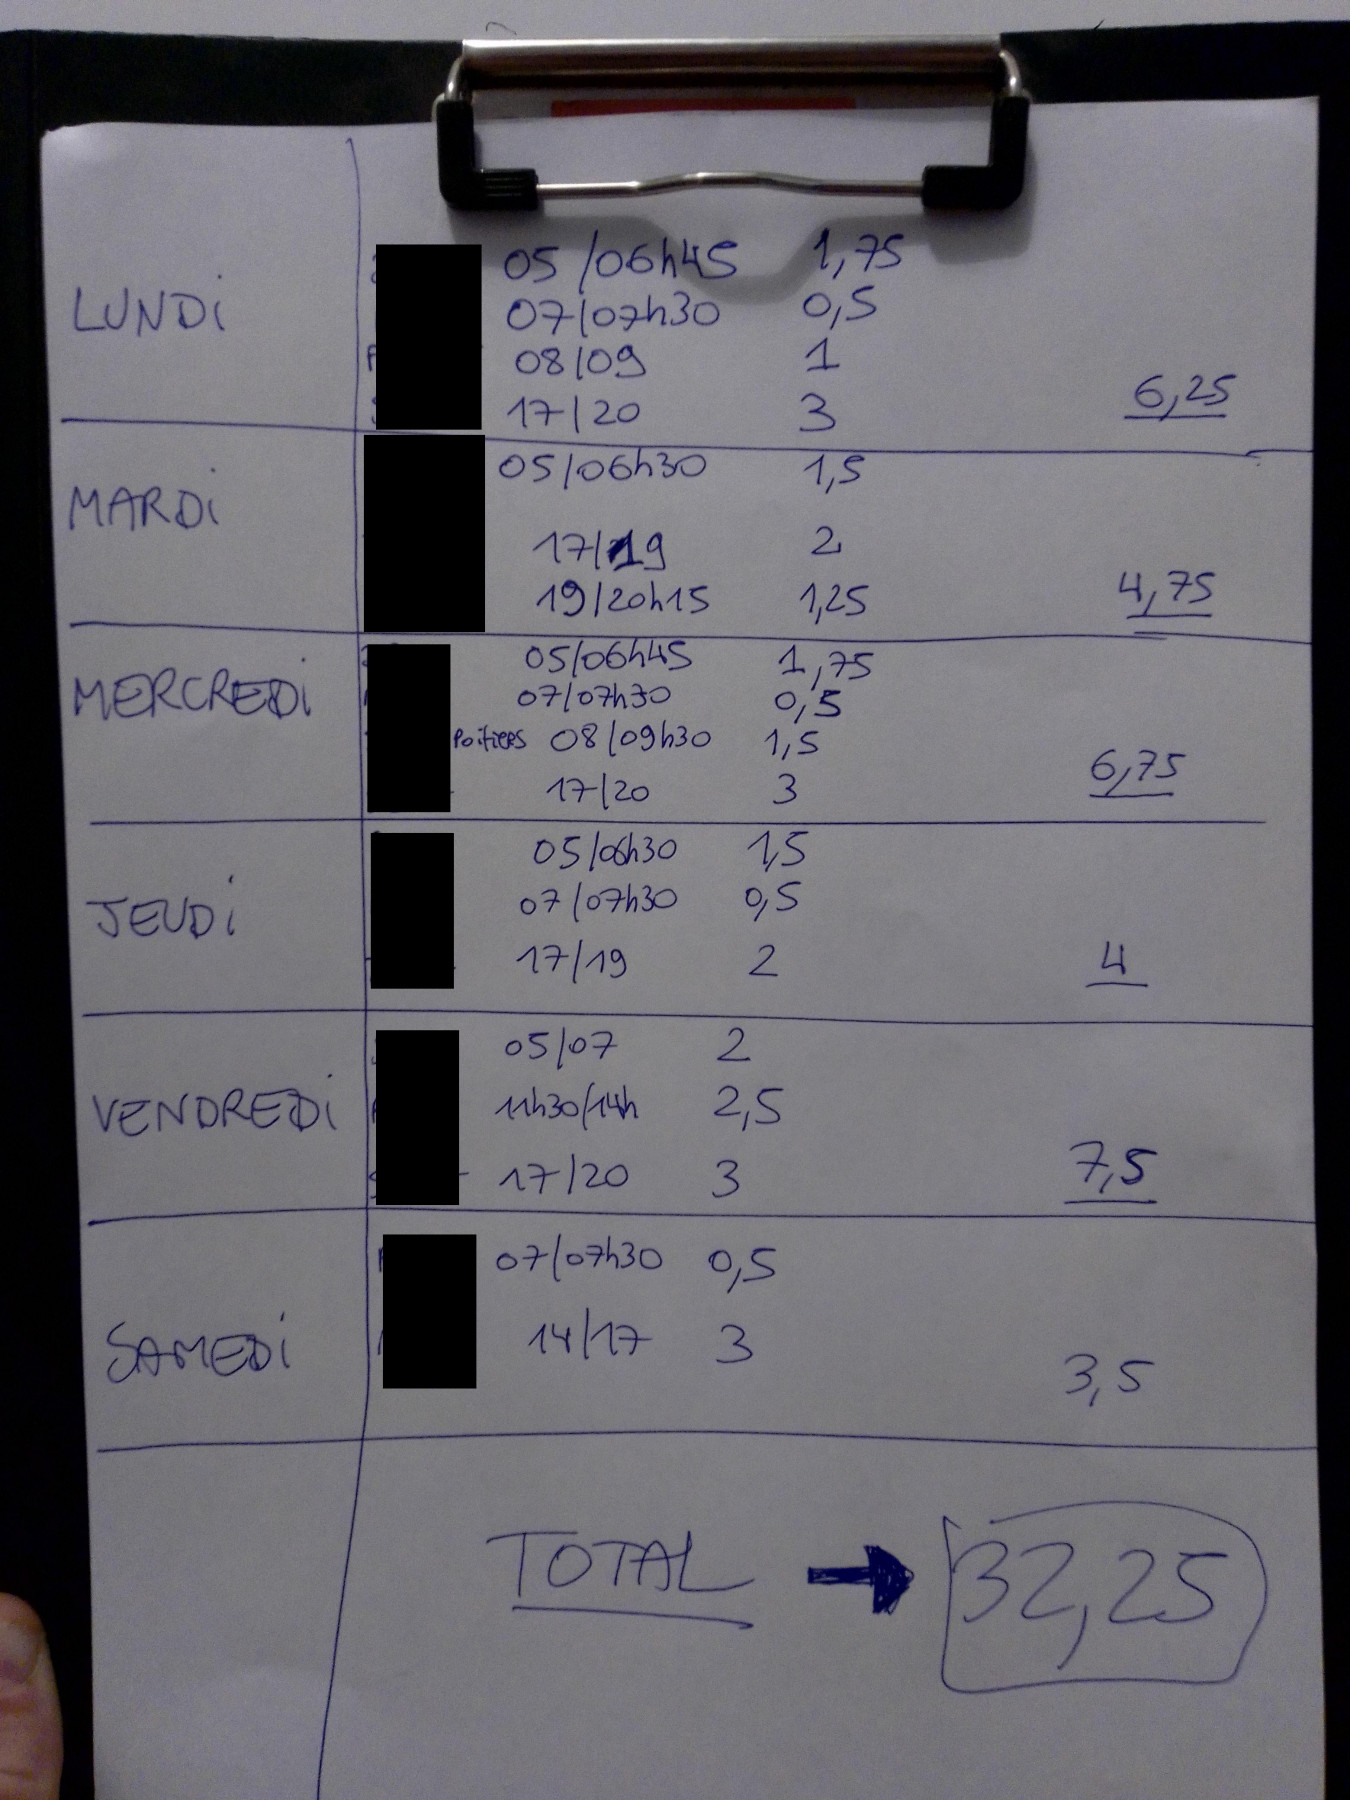 LUNDI
05/06h45 1,75
07/07h30 0,5
08/09 1
17/20 3
6,25
MARDI
05/06h30 1,5
17/19 2
19/20h15 1,25
4,75
MERCREDI
05/06h45 1,75
07/07h30 0,5
Poitiers 08/09h30 1,5
17/20 3
6,75
JEUDI
05/06h30 1,5
07/07h30 0,5
17/19 2
4
VENDREDI
05/07 2
11h30/14h 2,5
17/20 3
7,5
SAMEDI
07/07h30 0,5
14/17 3
3,5
TOTAL → 32,25